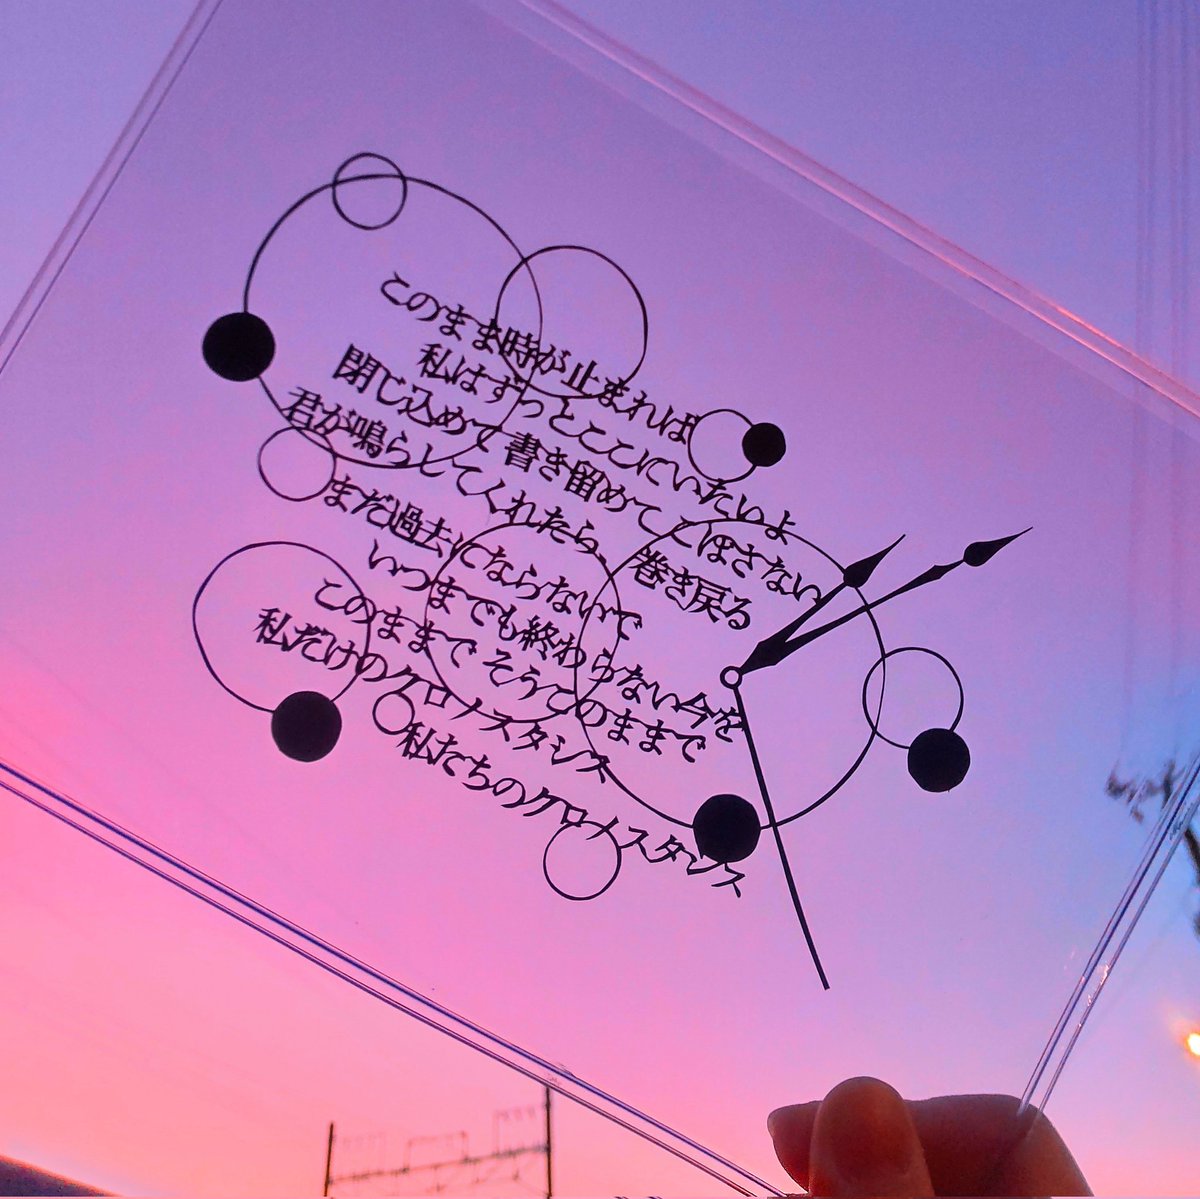 このまま時が止まれば
私はずっとここにいたいよ
閉じ込めて 書き留めて こぼさない
君が鳴らしてくれたら、巻き戻る
まだ過去にならないで
いつまでも終わらない今を
このままで そうこのままで
私だけのクロノスタシス
私たちのクロノスタシス